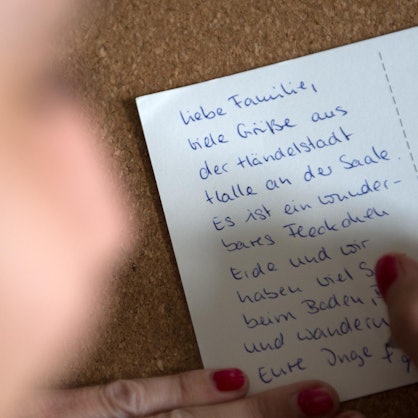 Liebe Familie,
viele Grüße aus
der Händelstadt
Halle an der Saale.
Es ist ein wunder-
bares Fleckchen
Erde und wir
haben viel
beim Baden
und wandern
Eure Inge